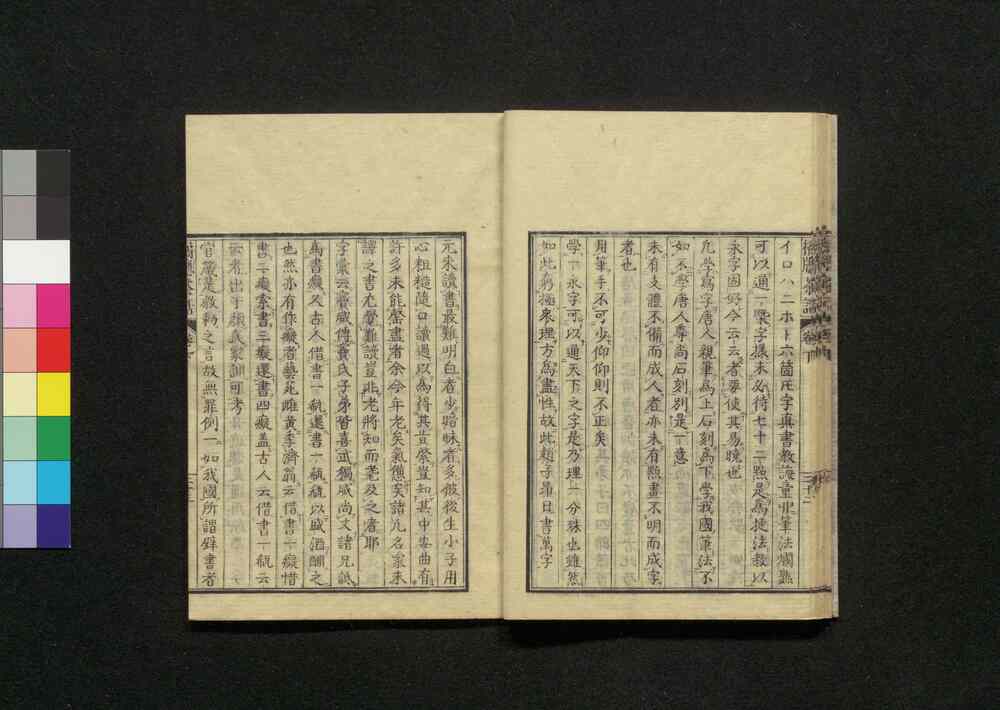 イロハニホト六箇正字真書教誨童兆筆法觸類
可以通一槩字樣未必待七十二㸃是爲捷法教以
永字固好今云云者要使其易曉也
凡學爲字唐人親筆爲上石刻爲下學我國筆法不
如不學唐人季尚石刻別是一意
未有支體不備而成人者亦未有㸃畫不明而成字
者也
用筆手不可少仰仰則不正矣
學一永字可以通天下之字是乃理一分殊也雖然
如此窮極衆理方爲盡性故此趙子昻日書萬字
元朱讀書最難明白者少暗昧者多彼後生小子用
心粗糙隨口讀過以爲得其旨𭝠豈知其中委曲有
許多未能罄盡者余今年老矣氣憊矣諸凡名家未
譯之書尤覺難讀豈非老將知而耄及之者耶
字彙云齊威傳竇氏子弟皆喜武獨威尚文諸兄詆
爲書癡又古人借書一瓻還書一瓻瓻以盛酒酬之
也然亦有作癡者藝苑雌黃李濟翁云借書一癡惜
書二癡索書三癡還書四癡蓋古人云借書一瓻云
云者出于顏氏家訓可考
官箴是教勅之言故無罪例一如我國所謂壁書者